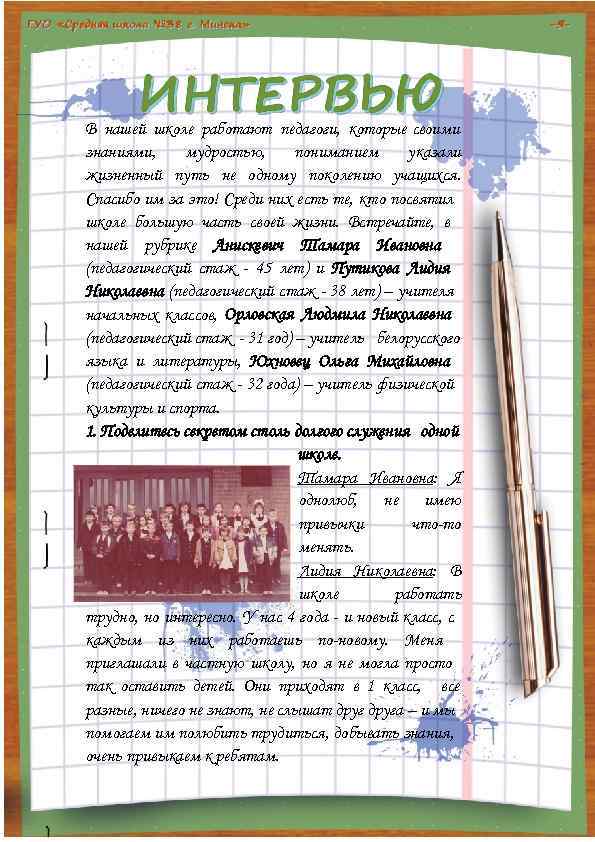 ГУО «Средняя школа №38 г. Минска»
-9-
ИНТЕРВЬЮ
В нашей школе работают педагоги, которые своими
знаниями, мудростью, пониманием указали
жизненный путь не одному поколению учащихся.
Спасибо им за это! Среди них есть те, кто посвятил
школе большую часть своей жизни. Встречайте, в
нашей рубрике Анискевич Тамара Ивановна
(педагогический стаж - 45 лет) и Путикова Лидия
Николаевна (педагогический стаж - 38 лет) – учителя
начальных классов, Орловская Людмила Николаевна
(педагогический стаж - 31 год) – учитель белорусского
языка и литературы, Юхновец Ольга Михайловна
(педагогический стаж - 32 года) – учитель физической
культуры и спорта.
1. Поделитесь секретом столь долгого служения одной
школе.
Тамара Ивановна: Я
однолюб, не имею
привычки что-то
менять.
Лидия Николаевна: В
школе работать
трудно, но интересно. У нас 4 года - и новый класс, с
каждым из них работаешь по-новому. Меня
приглашали в частную школу, но я не могла просто
так оставить детей. Они приходят в 1 класс, все
разные, ничего не знают, не слышат друг друга – и мы
помогаем им полюбить трудиться, добывать знания,
очень привыкаем к ребятам.